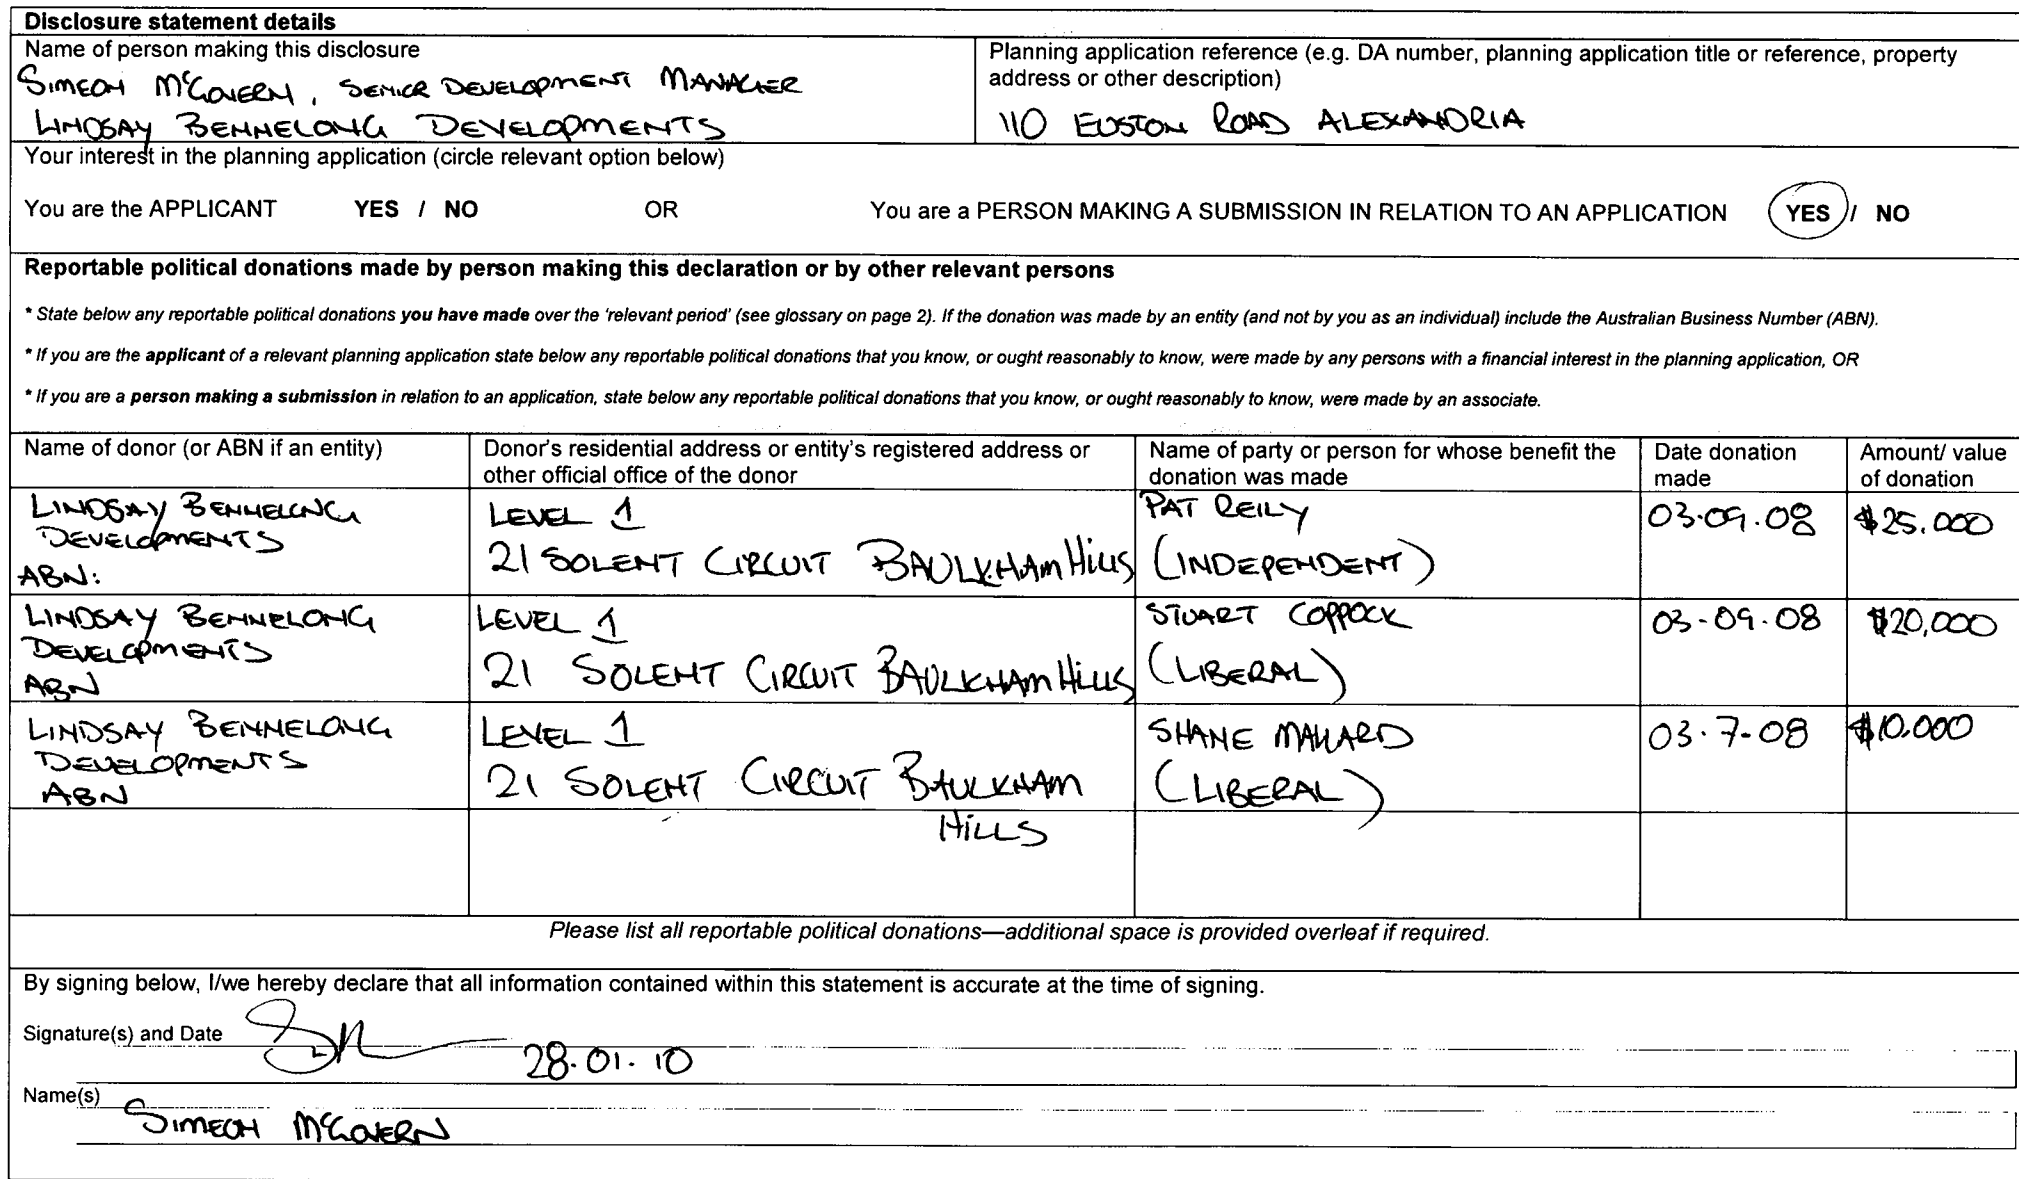 Disclosure statement details
Name of person making this disclosure
SIMEON McGOVERN, SENIOR DEVELOPMENT MANAGER
LINDSAY BENNELONG DEVELOPMENTS
Planning application reference (e.g. DA number, planning application title or reference, property
address or other description)
110 EUSTON ROAD ALEXANDRIA
Your interest in the planning application (circle relevant option below)
You are the APPLICANT YES / NO OR You are a PERSON MAKING A SUBMISSION IN RELATION TO AN APPLICATION YES / NO
Reportable political donations made by person making this declaration or by other relevant persons
* State below any reportable political donations you have made over the 'relevant period' (see glossary on page 2). If the donation was made by an entity (and not by you as an individual) include the Australian Business Number (ABN).
* If you are the applicant of a relevant planning application state below any reportable political donations that you know, or ought reasonably to know, were made by any persons with a financial interest in the planning application, OR
* If you are a person making a submission in relation to an application, state below any reportable political donations that you know, or ought reasonably to know, were made by an associate.
Name of donor (or ABN if an entity)
Donor's residential address or entity's registered address or
other official office of the donor
Name of party or person for whose benefit the
donation was made
Date donation
made
Amount/ value
of donation
LINDSAY BENNELONG
DEVELOPMENTS
ABN:
LEVEL 1
21 SOLENT CIRCUIT BAULKHAM HILLS
PAT REILY
(INDEPENDENT)
03.09.08
$25.000
LINDSAY BENNELONG
DEVELOPMENTS
ABN
LEVEL 1
21 SOLENT CIRCUIT BAULKHAM HILLS
STUART COPPOCK
(LIBERAL)
03-09.08
$20,000
LINDSAY BENNELONG
DEVELOPMENTS
ABN
LEVEL 1
21 SOLENT CIRCUIT BAULKHAM
HILLS
SHANE MALLARD
(LIBERAL)
03.7-08
$10.000
Please list all reportable political donations—additional space is provided overleaf if required.
By signing below, I/we hereby declare that all information contained within this statement is accurate at the time of signing.
Signature(s) and Date
28.01.10
Name(s)
SIMEON McGOVERN